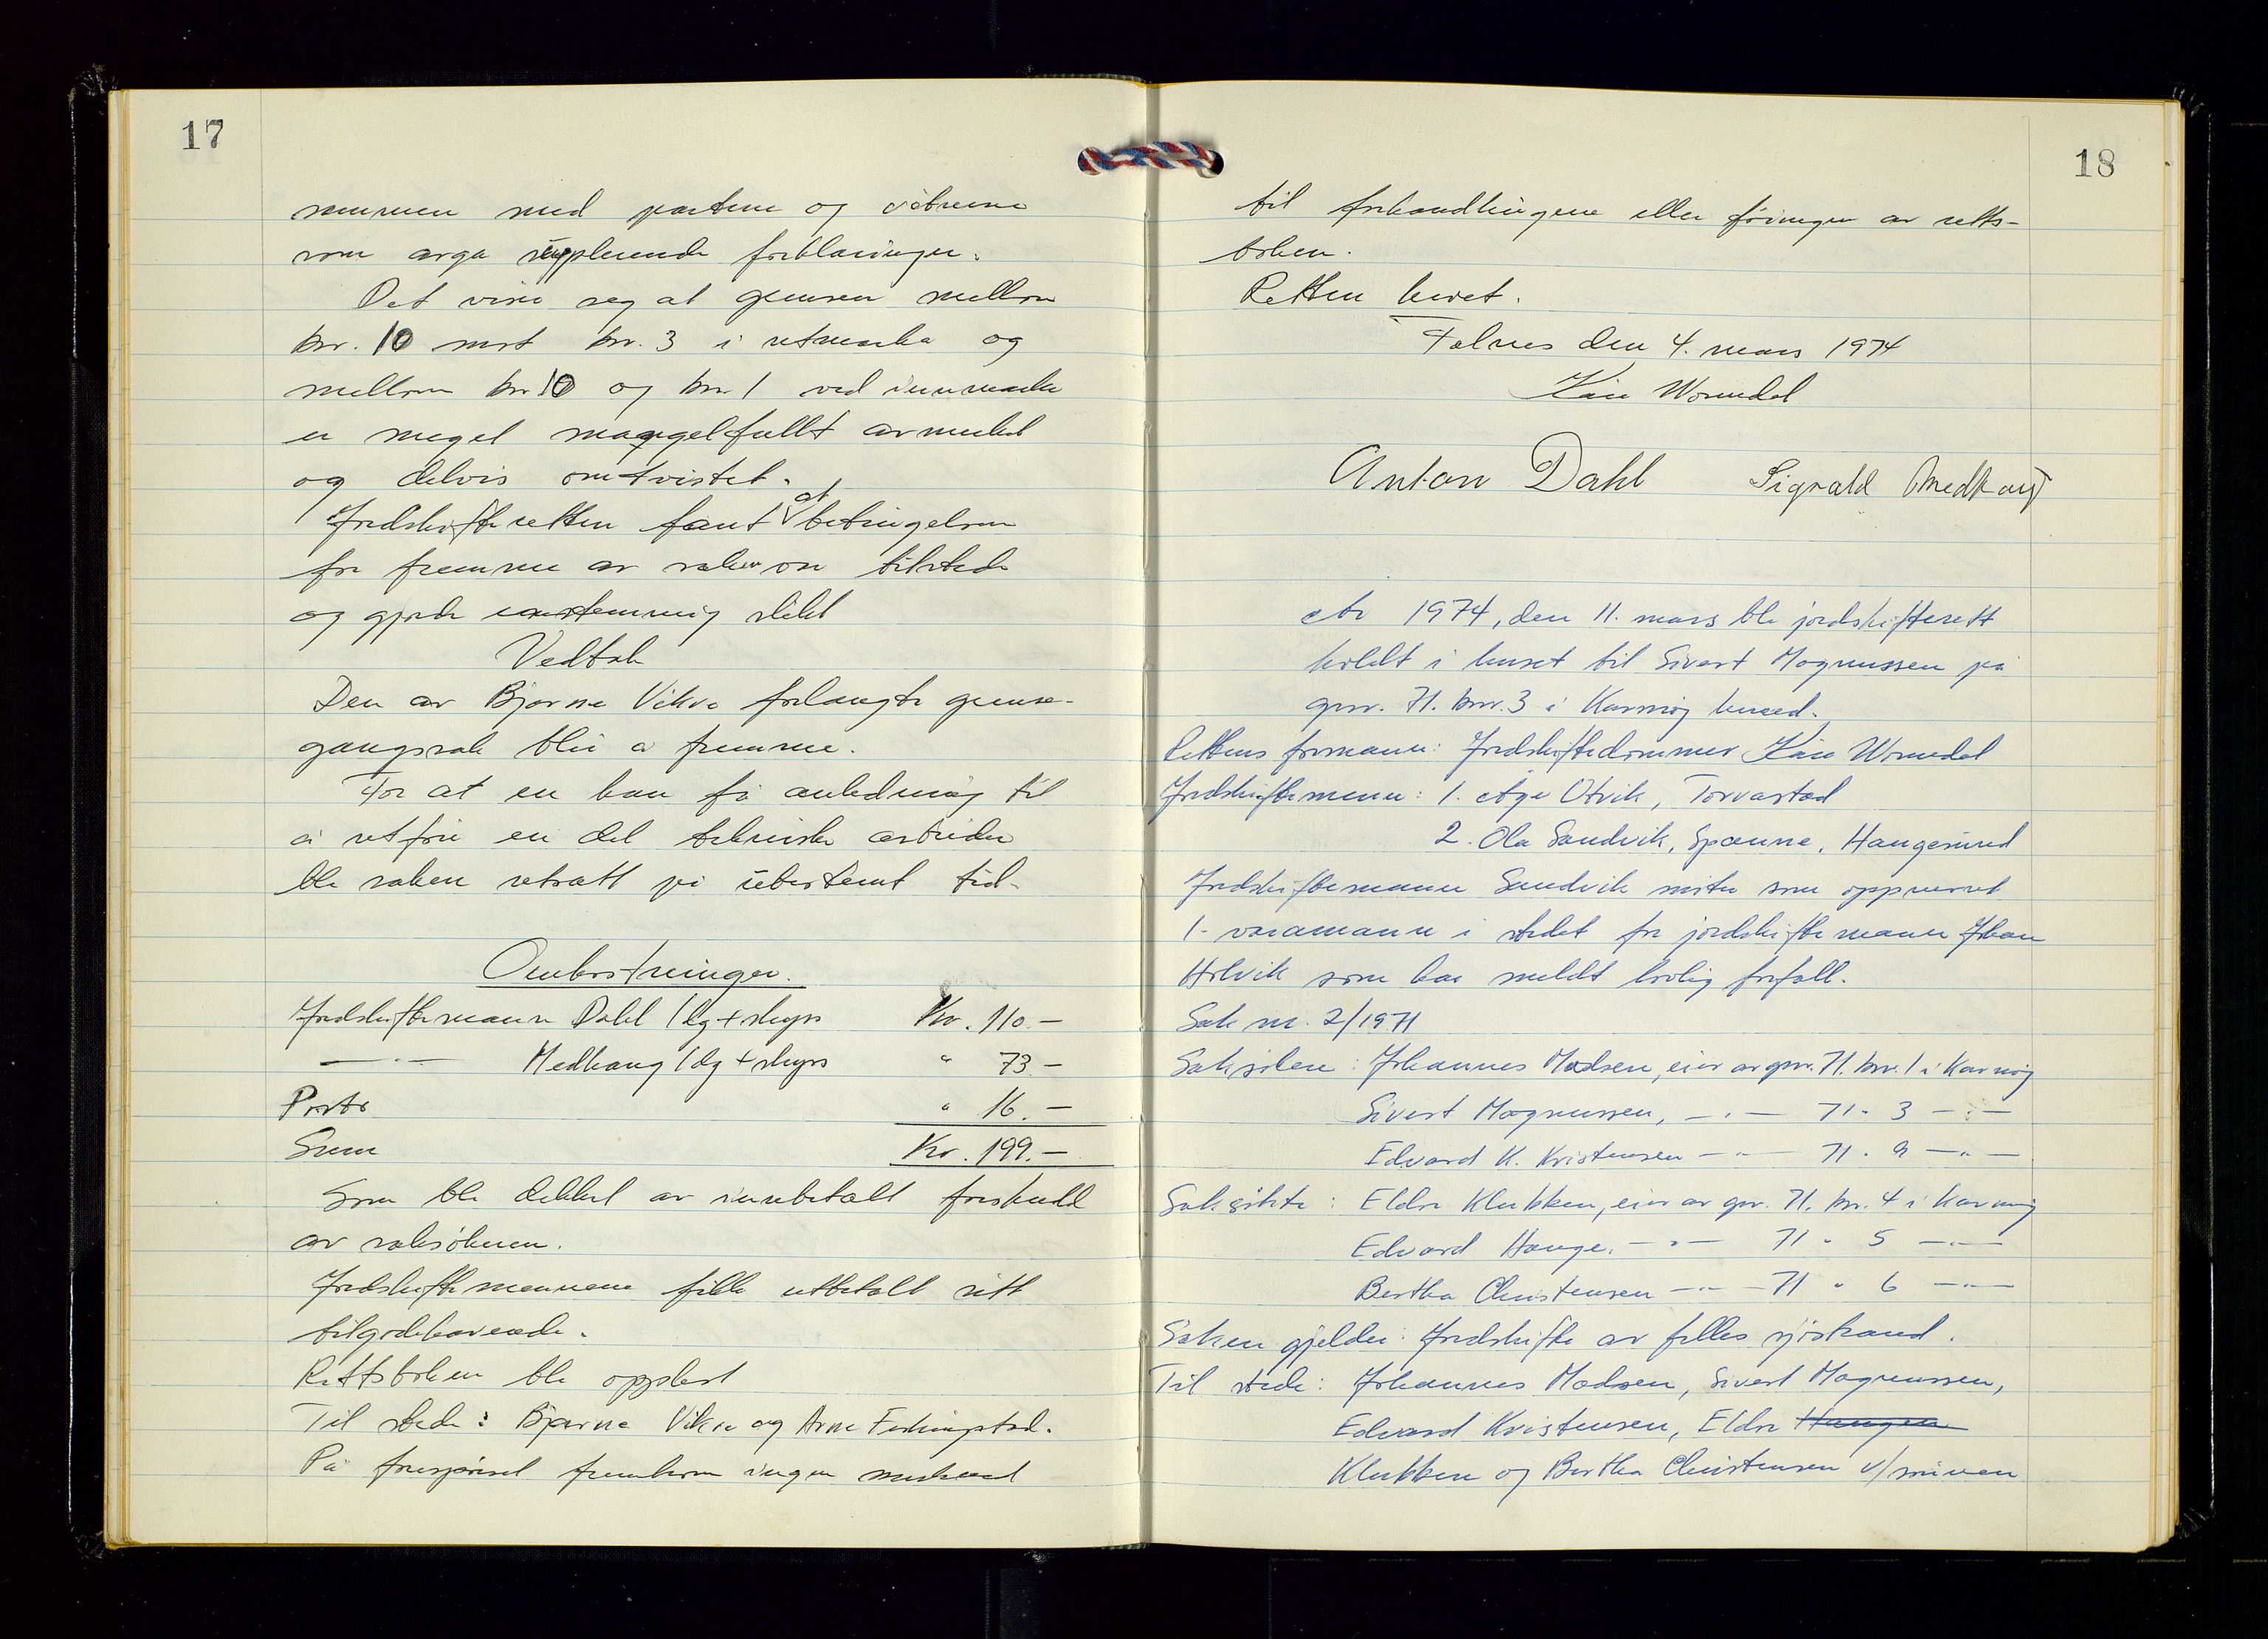 17
sammen med partene og vitnene
som avga supplerende forklaringer.
Det viser seg at grensen mellom
bnr. 10 mot bnr. 3 i utmarka og
mellom bnr 10 og bnr 1 ved innmarka
er meget mangelfullt avmerket
og delvis omtvistet.
Jordskifteretten fant at betingelsene
for fremme av saken var tilstede
og gjorde enstemmig slikt
Vedtak
Den av Bjarne Vikre forlangte grense-
gangssak blir å fremme.
For at en kan få anledning til
å utføre en del tekniske arbeider
ble saken utsatt på ubestemt tid.
Omkostninger.
Jordskiftemann Dahl 1 dg + skyss Kr. 110.-
— " — Medhaug 1 dg + skyss " 73.-
Porto " 16.-
Sum Kr. 199.-
Som ble dekket av innbetalt forskudd
av saksøkeren.
Jordskiftemennene fikk utbetalt sitt
tilgodehavende.
Rettsboken ble opplest
Til stede: Bjarne Vikre og Arne Ferkingstad.
På forespørsel fremkom ingen merknad
18
til forhandlingene eller føringen av retts-
boken.
Retten hevet.
Falnes den 4. mars 1974
Kåre Womdal
Anton Dahl Sigvald Medhaug
År 1974, den 11. mars ble jordskifterett
holdt i huset til Sivert Magnussen på
gnr. 71. bnr. 3 i Karmøy herred.
Rettens formann: Jordskiftedommer Kåre Womdal
Jordskiftemenn: 1. Åge Utvik, Torvastad
2. Ola Sandvik, Spanne, Haugesund
Jordskiftemann Sandvik møter som oppnevnt
1. varamann i stedet for jordskiftemann Johan
Holvik som har meldt lovlig forfall.
Sak nr. 2/1971
Saksøkere: Johannes Madsen, eier av gnr. 71. bnr. 1 i Karmøy
Sivert Magnussen, — " — 71 " 3 — " —
Edvard K. Kristensen — " — 71 " 9 — " —
Saksøkte: Eldor Klubben, eier av gnr. 71. bnr. 4 i Karmøy
Edvard Hauge. — " — 71 " 5 — " —
Bertha Christensen — " — 71 " 6 — " —
Saken gjelder: Jordskifte av felles sjøstrand.
Til stede: Johannes Madsen, Sivert Magnussen,
Edvard Kristensen, Eldor Haugen
Klubben og Bertha Christensen v/ sønnen